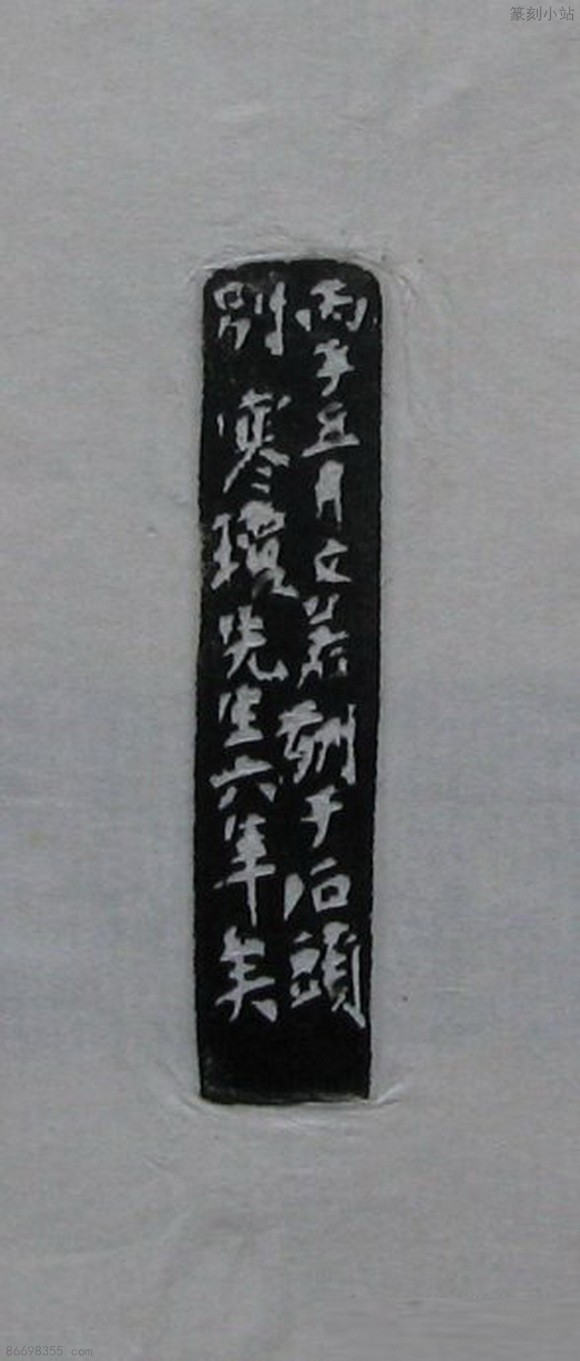 篆刻小站
丙子五月文叔刻于石頭
別寒瓊先生六年矣
86698355 com